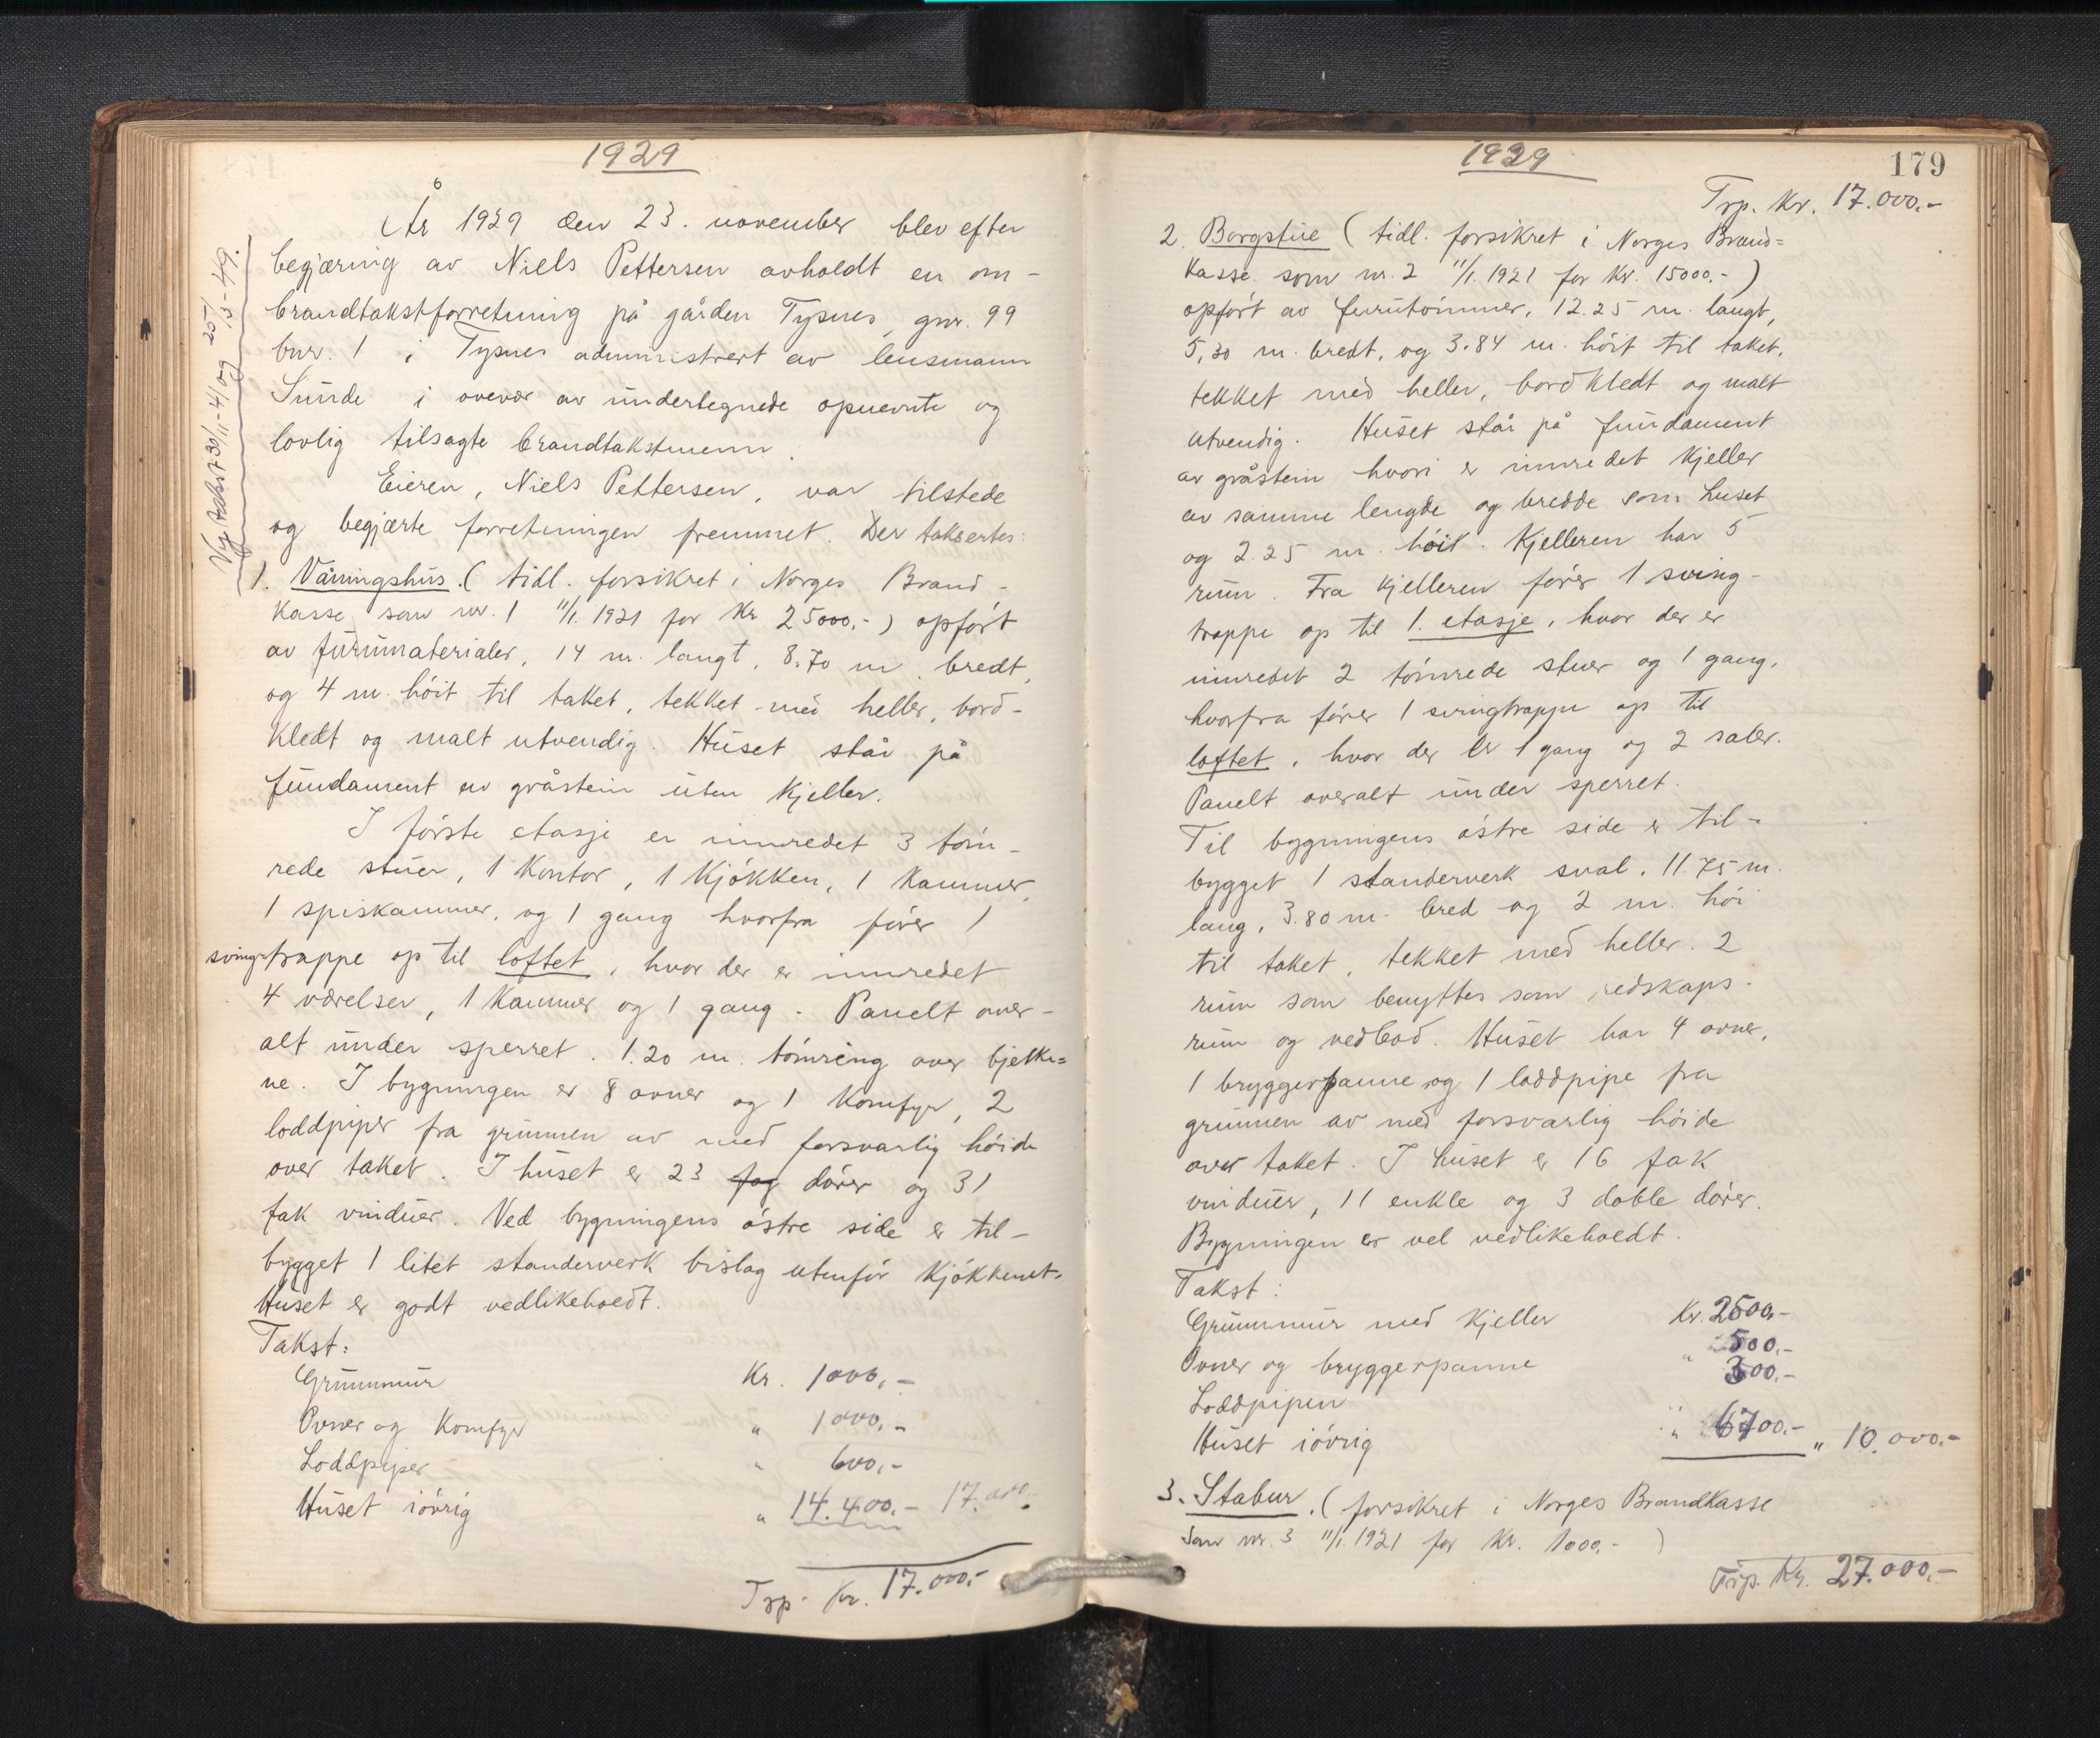 1929
År 1929 den 23. november blev efter
begjæring av Niels Pettersen avholdt en om-
brandtakstforretning på gården Tysnes, gnr. 99
bnr. 1 i Tysnes administrert av lensmann
Sunde i overvær av undertegnede opnevnte og
lovlig tilsagte brandtakstmenn.
Eieren, Niels Pettersen, var tilstede
og begjærte forretningen fremmet. Der takseres:
1. Våningshus. (tidl. forsikret i Norges Brand-
kasse som nr. 1 11/1. 1921 for Kr 25000,-) opført
av furumaterialer, 14 m. langt, 8.70 m. bredt,
og 4 m. höit til taket, tekket med heller, bord-
kledt og malt utvendig. Huset står på
fundament av gråstein uten kjeller.
I første etasje er innredet 3 töm-
rede stuer, 1 kontor, 1 kjökken, 1 kammer,
1 spiskammer, og 1 gang hvorfra förer 1
svingtrappe op til loftet, hvor der er innredet
4 værelser, 1 kammer og 1 gang. Panelt over-
alt under sperret. 1.20 m. tömring over bjelke=
ne. I bygningen er 8 ovner og 1 komfyr, 2
loddpiper fra grunnen av med forsvarlig höide
over taket. I huset er 23 fag dörer og 31
fak vinduer. Ved bygningens östre side er til-
bygget 1 litet standerverk bislag utenfor kjökkenet.
Huset er godt vedlikeholdt.
Takst:
Grunnmur Kr. 1000,-
Ovner og komfyr " 1000,-
Loddpiper " 600,-
Huset iövrig " 14.400.- 17.000.-
Trp. Kr. 17.000,-
Ny takst 30/11-41 og 25/3-49.
1929
179
Trp. Kr. 17.000.-
2. Borgstue (tidl. forsikret i Norges Brand=
kasse som nr. 2 11/1. 1921 for Kr. 15000.-)
opfört av furutömmer, 12.25 m. langt,
5,30 m. bredt, og 3.84 m. höit til taket,
tekket med heller, bordkledt og malt
utvendig. Huset står på fundament
av gråstein hvori er innredet kjeller
av samme lengde og bredde som huset
og 2.25 m. höit. Kjelleren har 5
rum. Fra kjelleren förer 1 sving-
trappe op til 1. etasje, hvor der er
innredet 2 tömrede stuer og 1 gang,
hvorfra förer 1 svingtrappe op til
loftet, hvor der er 1 gang og 2 saler.
Panelt overalt under sperret.
Til bygningens östre side er til-
bygget 1 standerverk sval. 11.75 m.
lang, 3.80 m. bred og 2 m. höi
til taket, tekket med heller. 2
rum som benyttes som redskaps-
rum og vedbod. Huset har 4 ovner,
1 bryggerpanne og 1 loddpipe fra
grunnen av med forsvarlig höide
over taket. I huset er 16 fak
vinduer, 11 enkle og 3 doble dörer.
Bygningen er vel vedlikeholdt.
Takst:
Grunnmur med kjeller Kr. 2500,-
Ovner og bryggerpanne " 500.-
Loddpipen 300.-
Huset iövrig " 6700.- " 10.000.-
3. Stabur. (forsikret i Norges Brandkasse
som nr. 3 11/1. 1921 for Kr. 1000.-)
Trp. Kr. 27.000,-